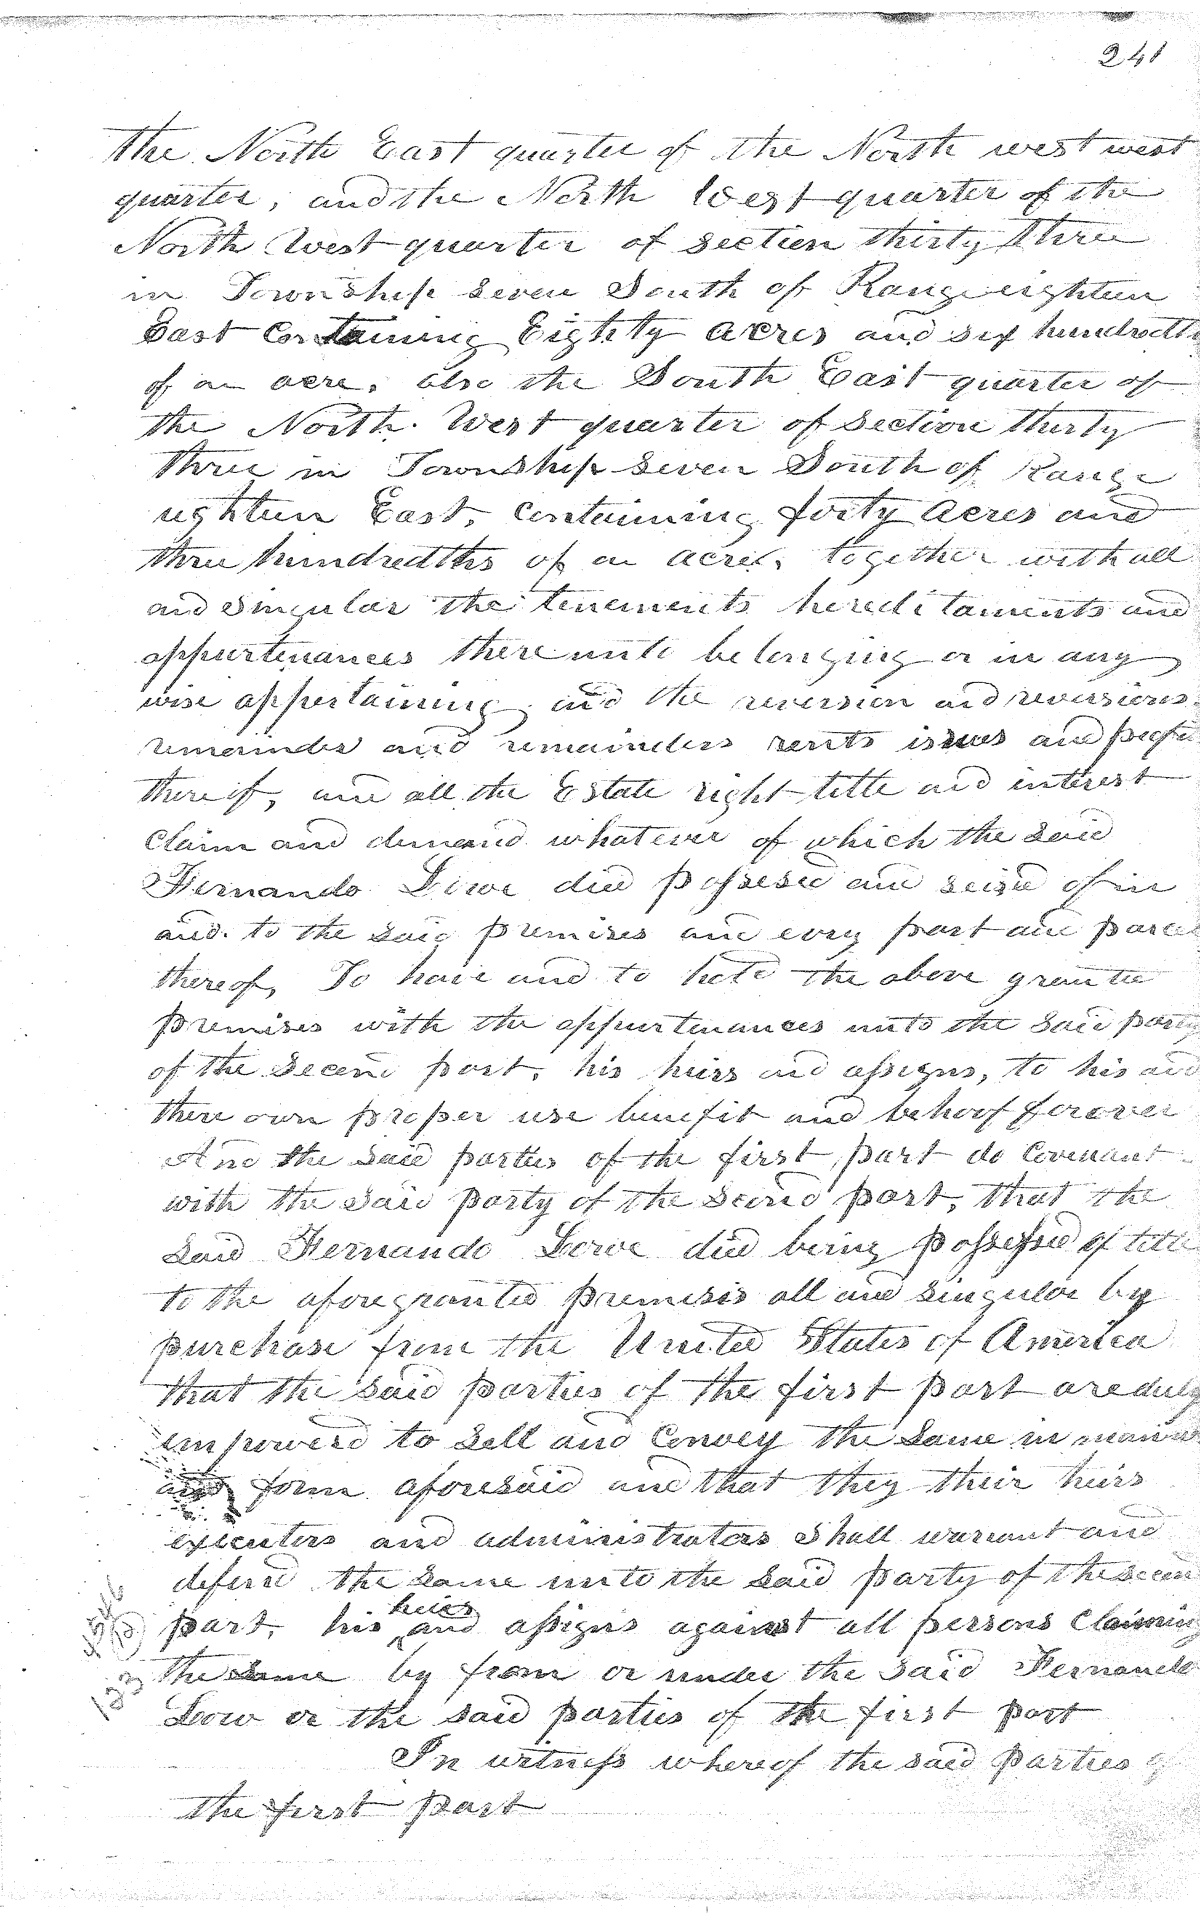 241
the North East quarter of the North west west
quarter, and the North West quarter of the
North West quarter of section thirty three
in Township seven South of Range eighteen
East Containing Eighty acres and six hundredths
of an acre, also the South East quarter of
the North West quarter of section thirty
three in Township seven South of Range
eighteen East, Containing forty acres and
three hundredths of an acre, together with all
and singular the tenements hereditaments and
appurtenances there unto belonging or in any
wise appertaining and the reversion and reversions
remainder and remainders rents issues and profits
thereof, and all the Estate right title and interest
claim and demand whatever of which the said
Fernando Lowe died possesed and seized of in
and to the said premises and every part and parcel
thereof, To have and to hold the above granted
premises with the appurtenances unto the said party
of the second part, his heirs and assigns, to his and
there own proper use benefit and behoof forever
And the said parties of the first part do Covenant
with the said party of the second part, that the
said Fernando Lowe died being possessed of title
to the aforegranted premises all and singular by
purchase from the United States of America
that the said parties of the first part are duly
empowered to sell and Convey the same in manner
and form aforesaid and that they their heirs
executors and administrators shall warrant and
defend the same unto the said party of the second
part, his heirs and assigns against all persons claiming
the same by from or under the said Fernando
Low or the said parties of the first part
In witness whereof the said parties of
the first part